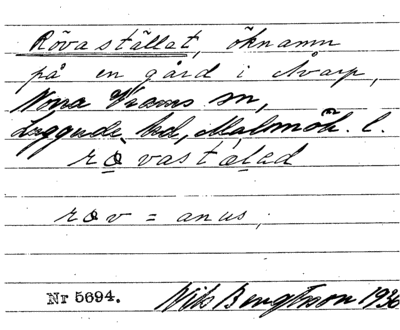 Rövastället, öknamn
på en gård i Åvarp,
Norra Vrams sn,
Luggude hd, Malmöh. l.
rovastälad
rov = anus;
Nr 5694. Nils Bengtsson 1936